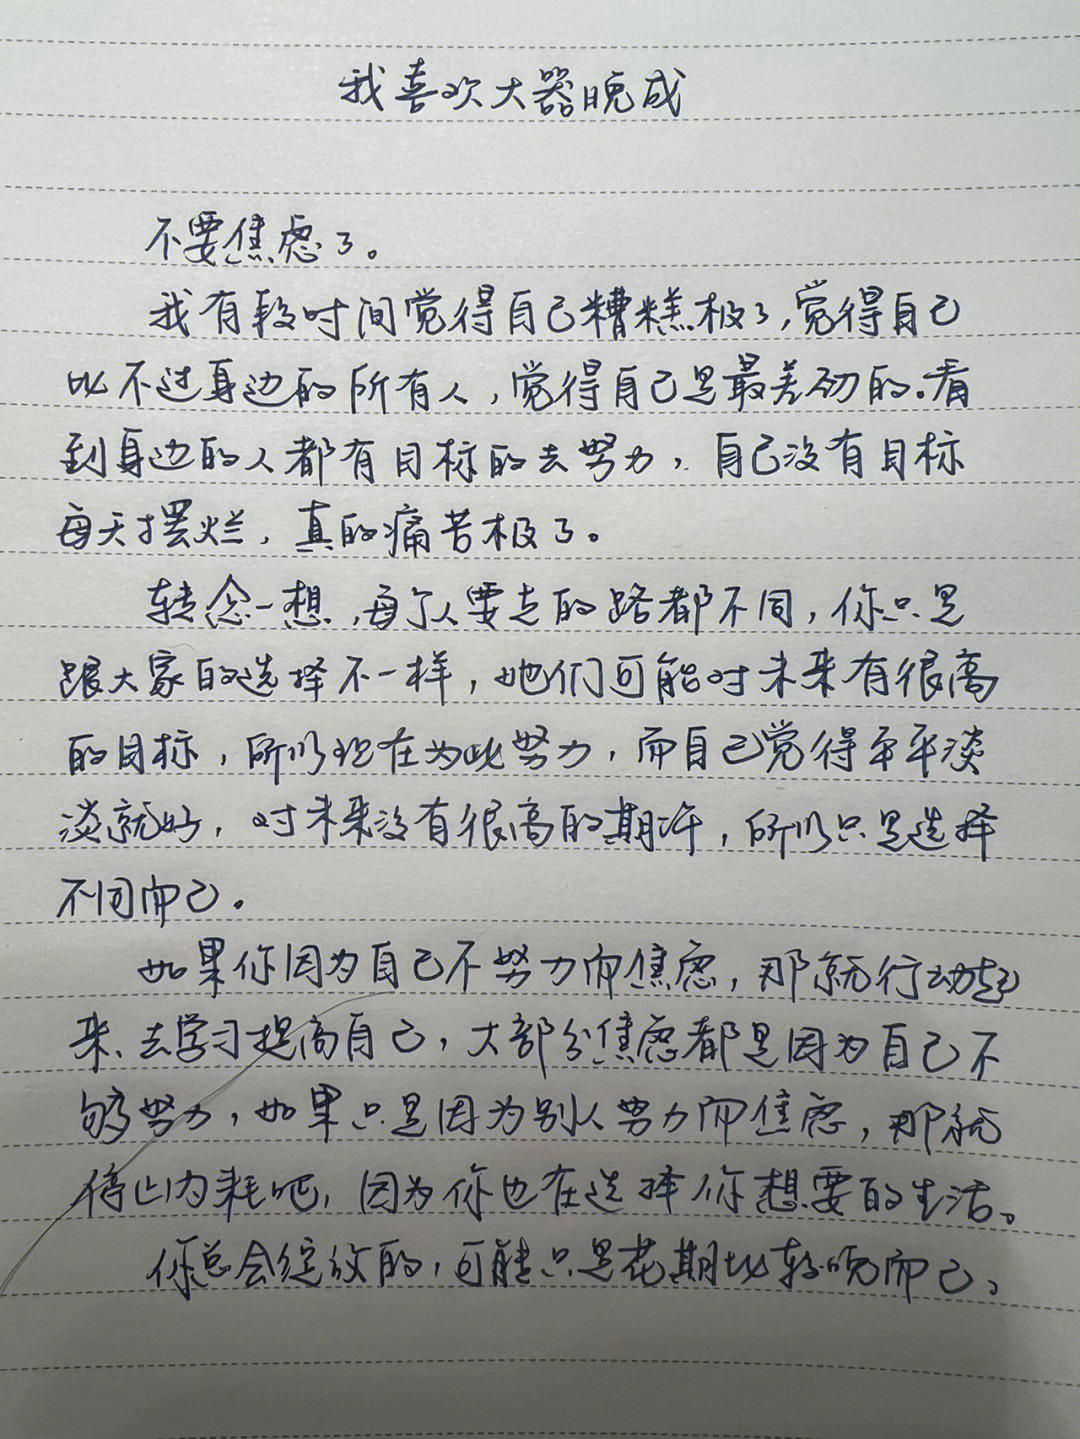 我喜欢大器晚成
不要焦虑了。
我有段时间觉得自己糟糕极了,觉得自己
比不过身边的所有人,觉得自己是最差劲的。看
到身边的人都有目标的去努力,自己没有目标
每天摆烂,真的痛苦极了。
转念一想,每个人要走的路都不同,你只是
跟大家的选择不一样,她们可能对未来有很高
的目标,所以现在为此努力,而自己觉得平平淡
淡就好,对未来没有很高的期许,所以只是选择
不同而已。
如果你因为自己不努力而焦虑,那就行动起
来、去学习提高自己,大部分焦虑都是因为自己不
够努力,如果只是因为别人努力而焦虑,那就
停止内耗吧,因为你也在选择你想要的生活。
你总会绽放的,可能只是花期比较晚而已。